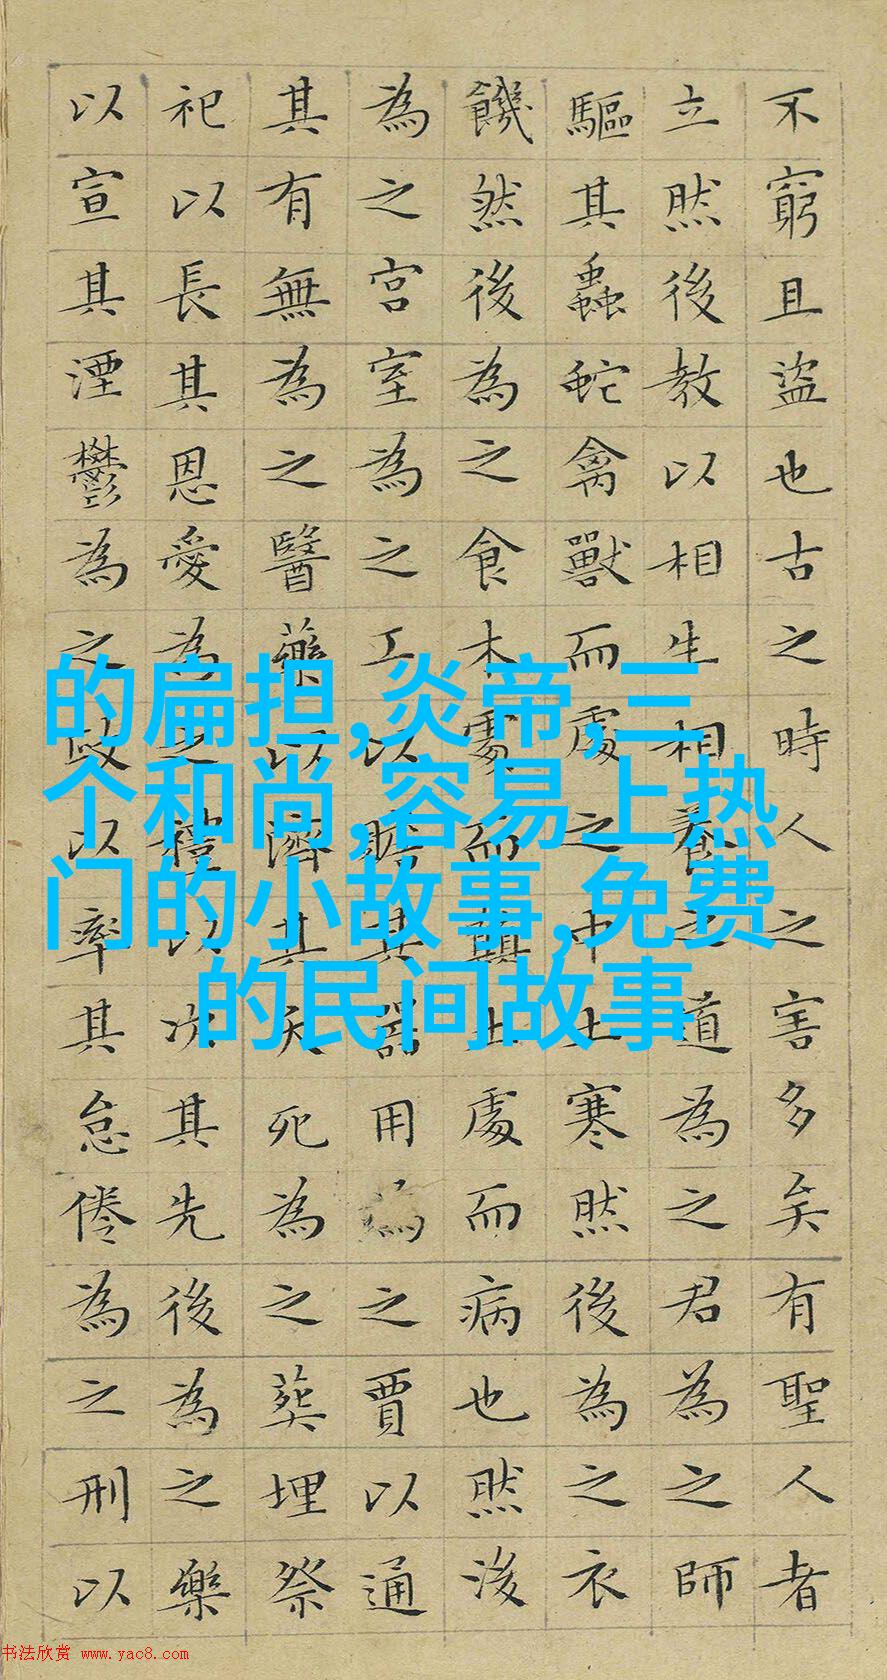 不窮且盜也古之時人之害多矣有聖人者
立然後教以相生相養之道為之君為之師
驅其蟲蛇禽獸而處之中土寒然後為之衣
饑然後為之食木處而顛土處而病也然後
為之宮室為之工以贍其器用為之賈以通
其有無為之醫藥以濟其夭死為之葬埋祭
祀以長其恩愛為之禮以次其先後為之樂
以宣其湮鬱為之政以率其怠倦為之刑以
的扁担,炎帝,三
个和尚,容易上热
门的小故事,免费
的民间故事
书法欣赏 www.yac8.com